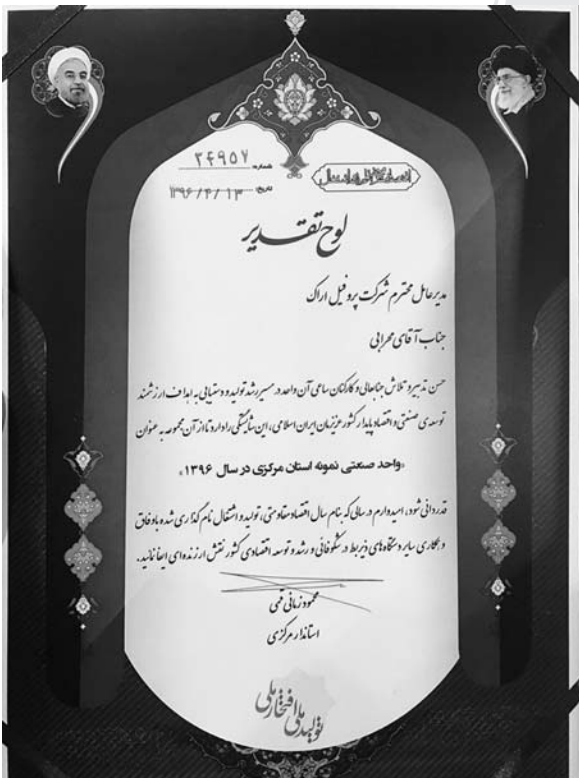 شماره ۲۴۹۵۷
تاریخ ۱۳۹۶/۴/۱۳
لوح تقدیر
مدیرعامل محترم شرکت پروفیل اراک
جناب آقای محرابی
حسن تدبیر و تلاش جنابعالی و کارکنان ساعی آن واحد در مسیر رشد تولید و دستیابی به اهداف ارزشمند
توسعه‌ی صنعتی و اقتصاد پایدار کشور عزیزمان ایران اسلامی، این شایستگی را دارد تا از آن مجموعه به عنوان
«واحد صنعتی نمونه استان مرکزی در سال ۱۳۹۶»
قدردانی شود، امیدوارم در سالی که بنام سال اقتصاد مقاومتی، تولید و اشتغال نام گذاری شده با وفاق
و همکاری سایر دستگاه‌های ذیربط در شکوفائی و رشد و توسعه اقتصادی کشور نقش ارزنده‌ای ایفا نمائید.
محمود زمانی قمی
استاندار مرکزی
تولید ملی افتخار ملی